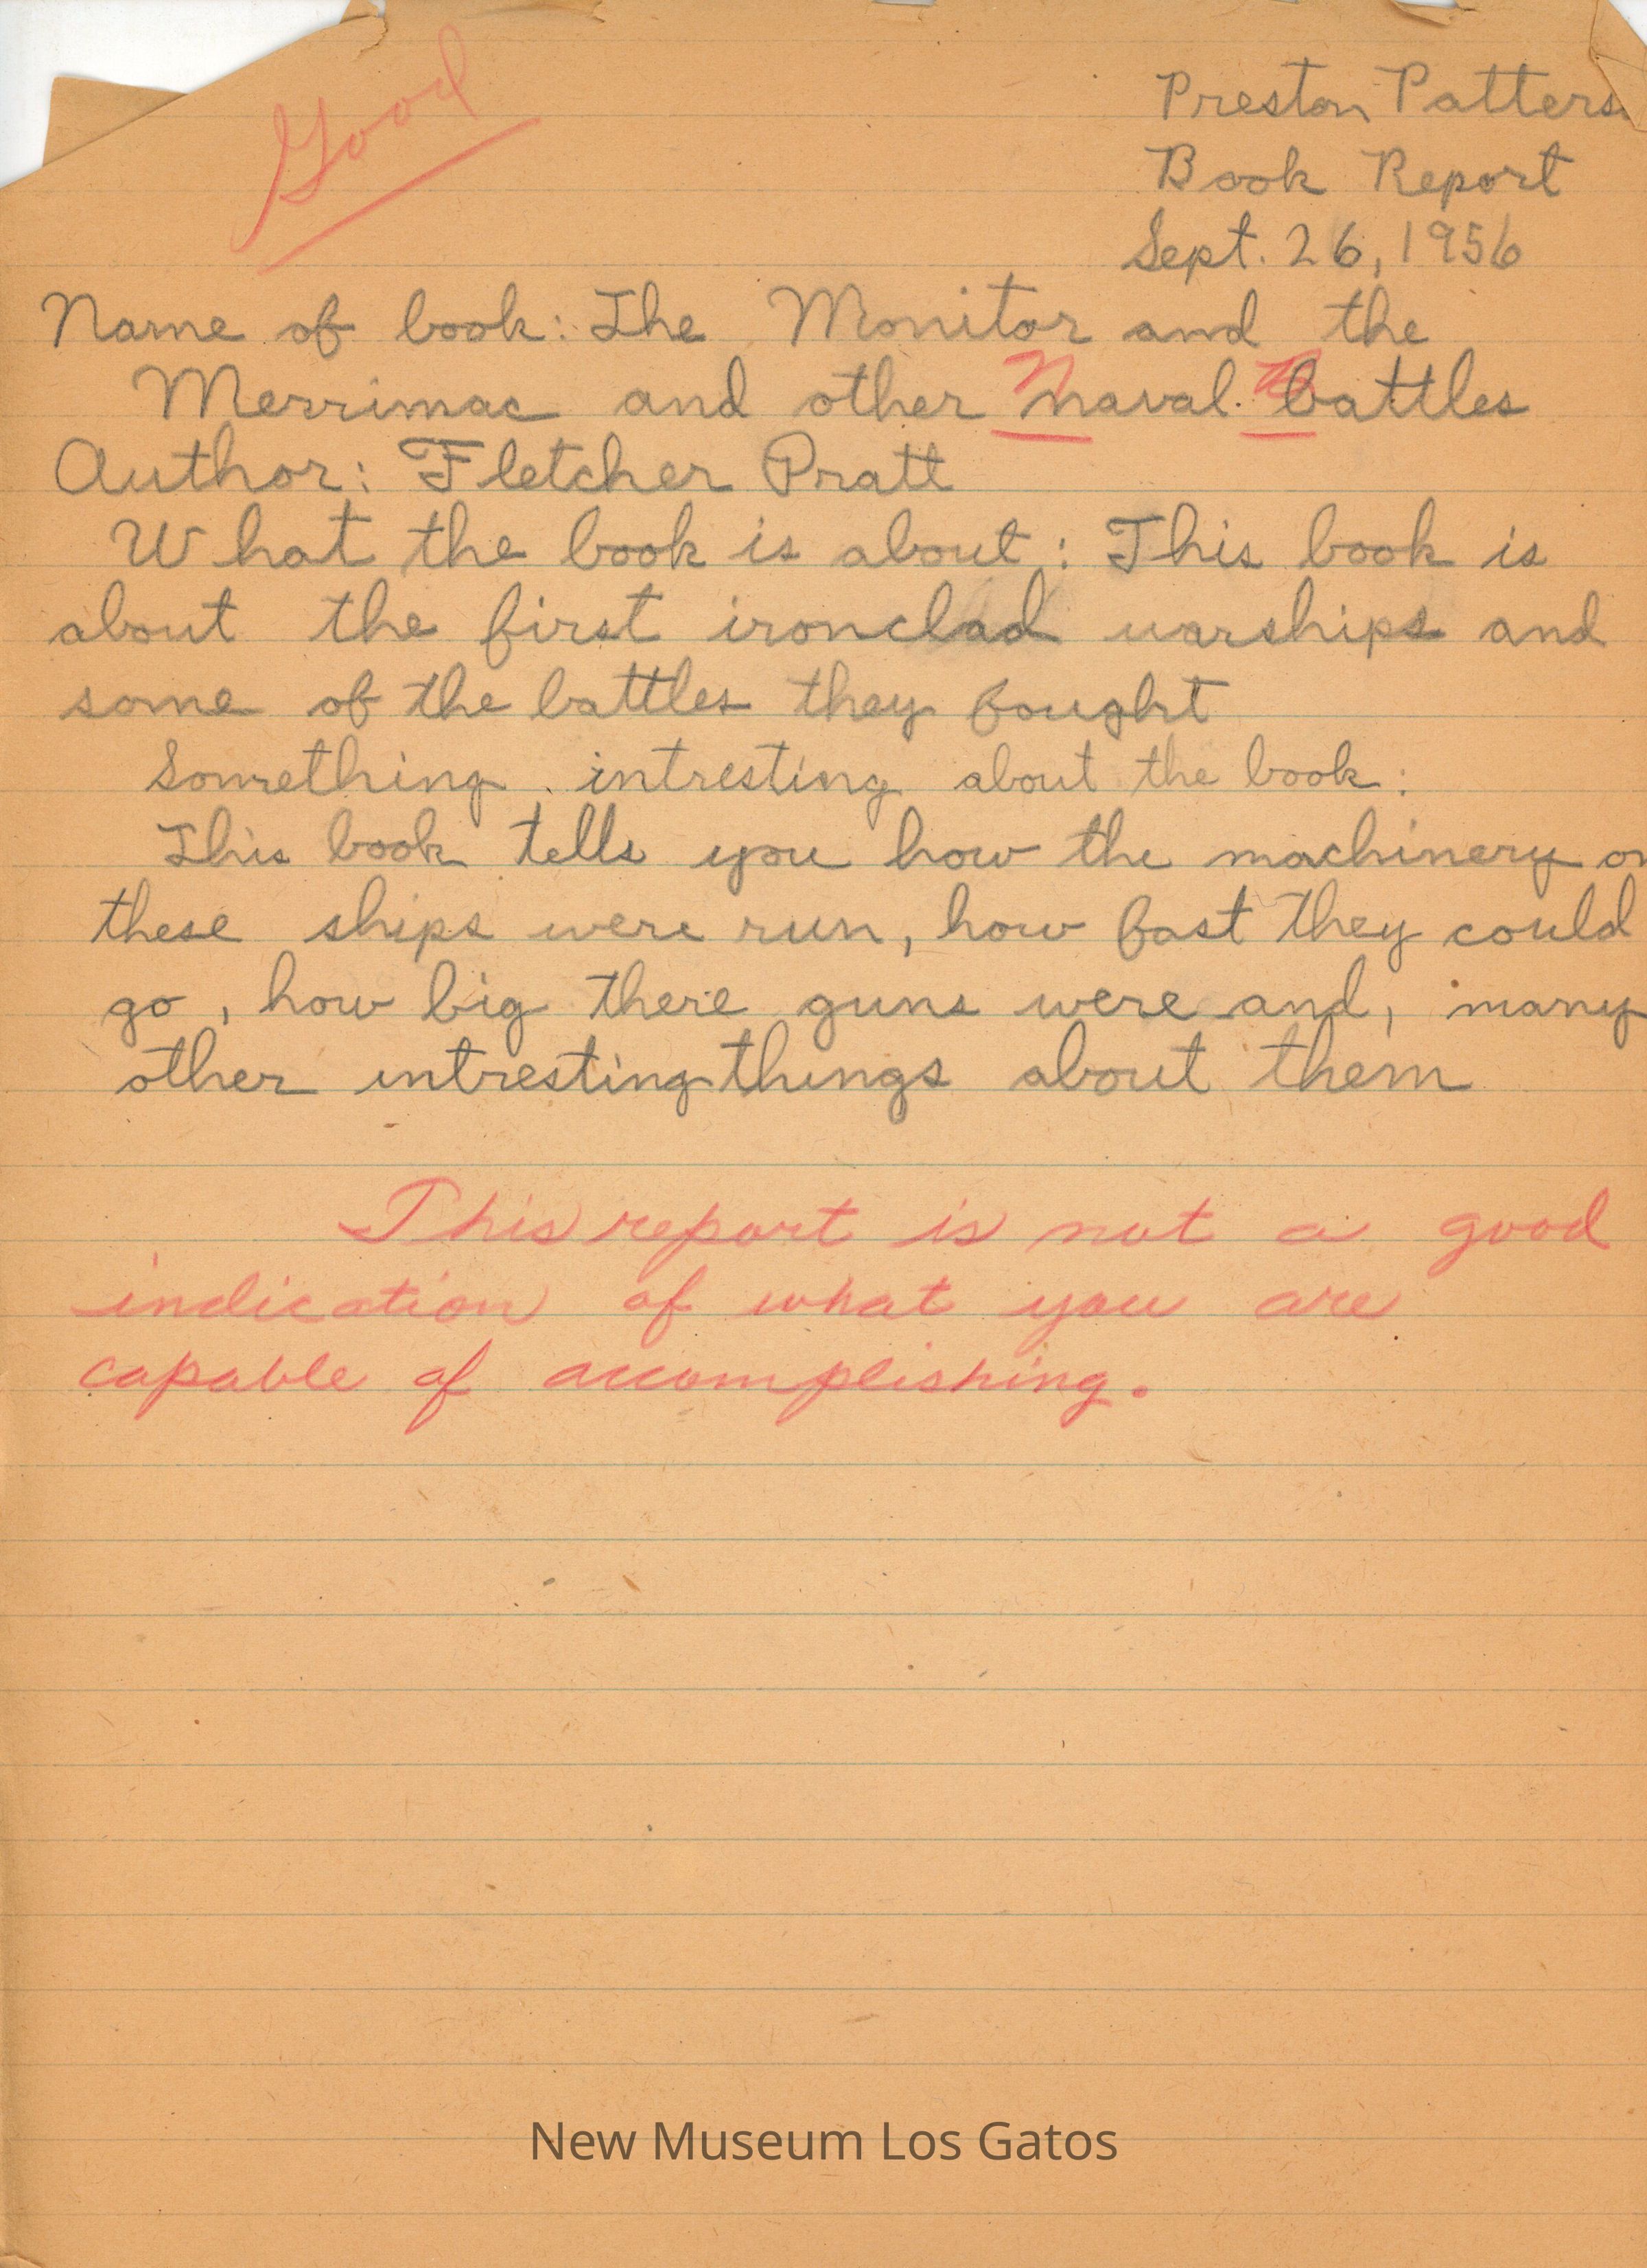 Good
Preston Patters
Book Report
Sept. 26, 1956
Name of book: The Monitor and the
Merrimac and other naval battles
N B
Author: Fletcher Pratt
What the book is about: This book is
about the first ironclad warships and
some of the battles they fought
Something intresting about the book:
This book tells you how the machinery on
these ships were run, how fast they could
go, how big there guns were and, many
other intresting things about them
This report is not a good
indication of what you are
capable of accomplishing.
New Museum Los Gatos